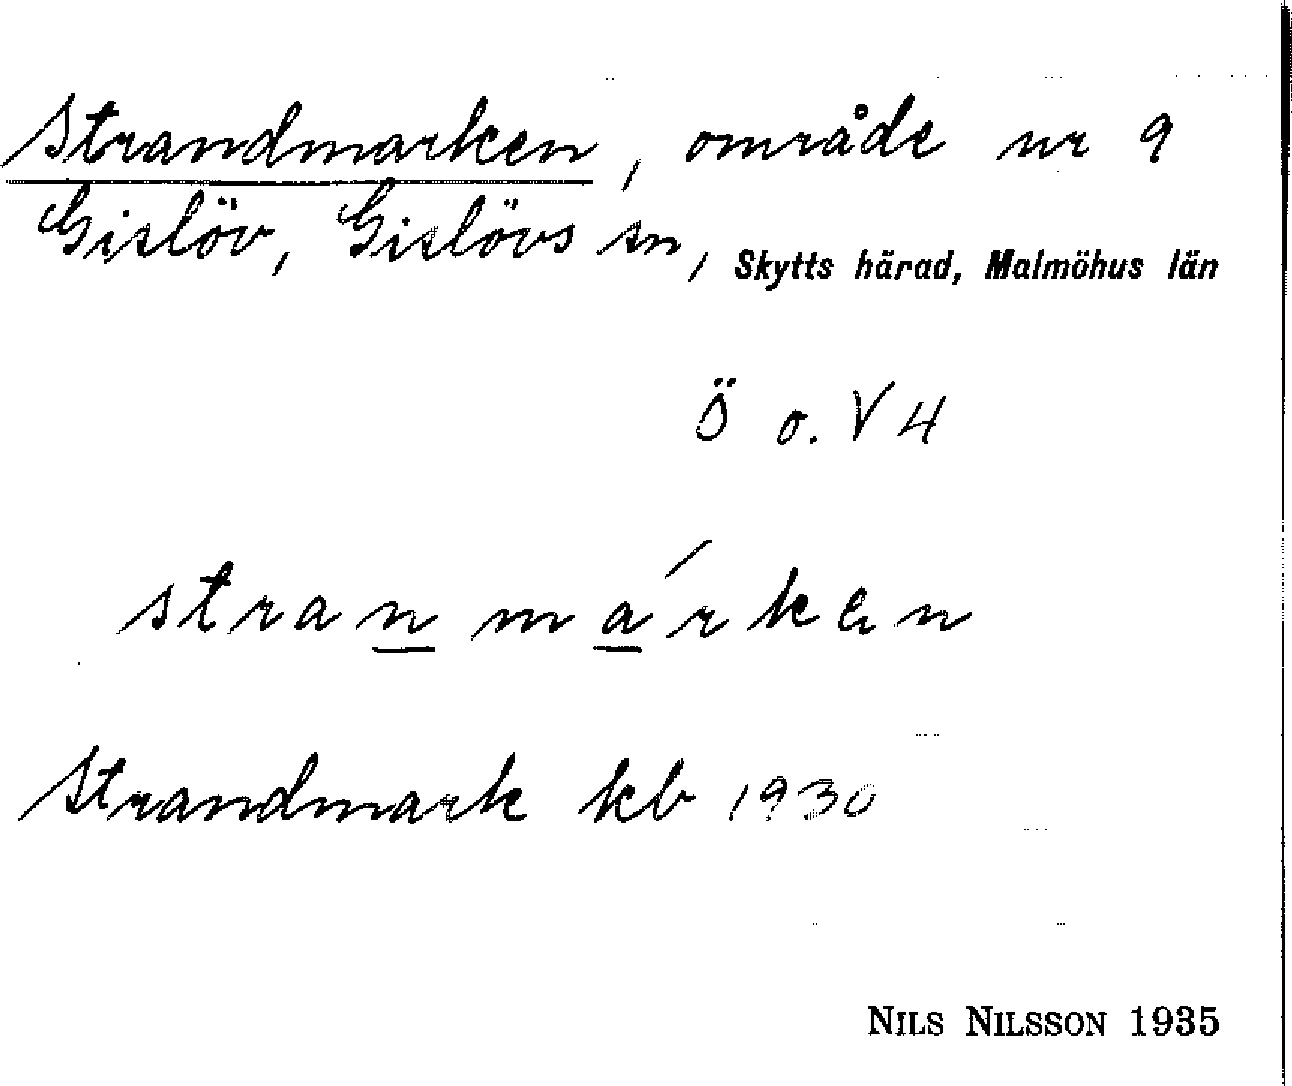 Strandmarken, område nr 9
Gislöv, Gislövs sn, Skytts härad, Malmöhus län
Ö o. V 4
stranmárken
Strandmark kb 1930
NILS NILSSON 1935